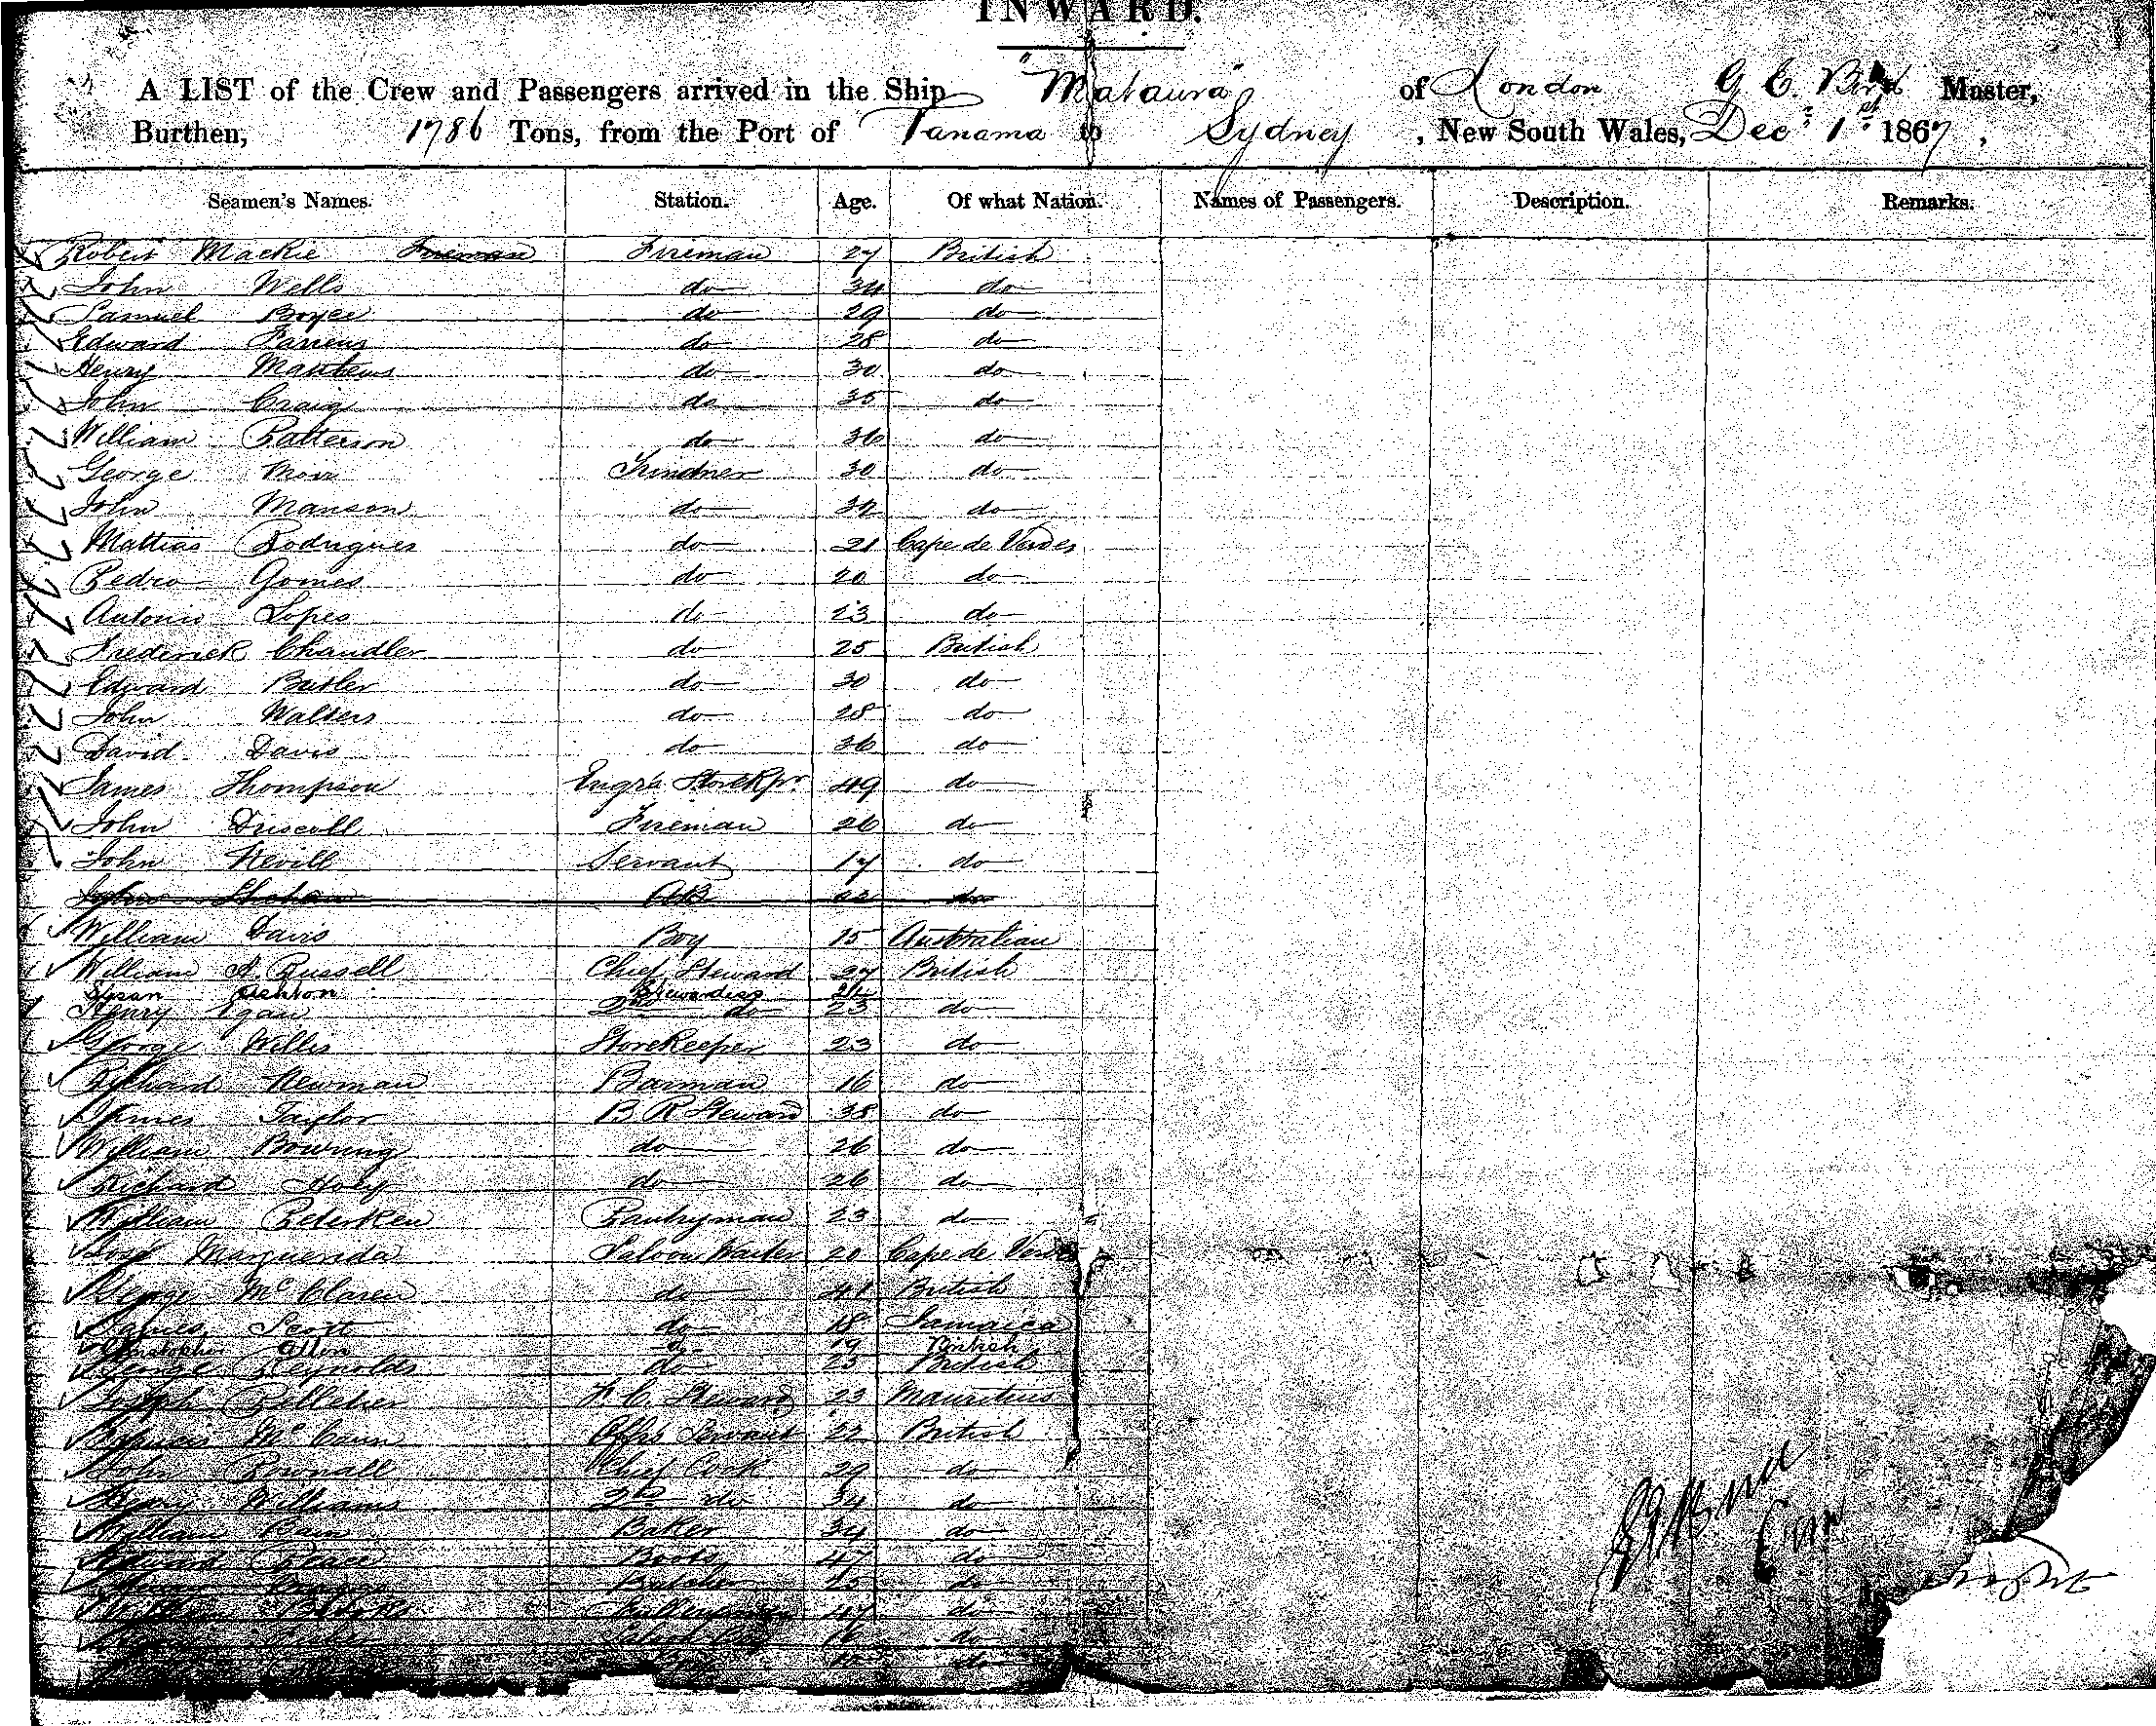 INWARD.
A LIST of the Crew and Passengers arrived in the Ship "Mataura" of London G E. Bird Master,
Burthen, 1786 Tons, from the Port of Panama to Sydney, New South Wales, Dec. 1st 1867,
Seamen's Names. Station. Age. Of what Nation. Names of Passengers. Description. Remarks.
Robert Mackie Fireman Fireman 27 British
John Wells do 34 do
Samuel Boyce do 29 do
Edward do 28 do
Henry Matthews do 30 do
John Craig do 35 do
William Patterson do 36 do
George Moir Trimmer 30 do
John Manson do 32 do
Mattias Rodrigues do 21 Cape de Verdes
Pedro Gomes do 20 do
Antonio Lopes do 23 do
Frederick Chandler do 25 British
Edward Butler do 30 do
John Walters do 28 do
David Davis do 36 do
James Thompson Engrs Storekpr 49 do
John Driscoll Fireman 26 do
John Nevill Servant 17 do
John AB 22 do
William Davis Boy 15 Australian
William A. Russell Chief Steward 27 British
Susan Ashton Stewardess
Henry Egan 2nd do 23 do
George Willis Storekeeper 23 do
Richard Newman Barman 16 do
James Taylor B. R Steward 38 do
William Bowring do 26 do
Richard Hoby do 26 do
William Pederken Pantryman 23 do
José Marguenda Saloon Waiter 20 Cape de Verde
George McClaren do 41 British
James Scott do 18 Jamaica
Christopher Allen do 19 British
George Reynolds do 23 British
Joseph Pelletier F. C. Steward 23 Mauritius
Francis McCann Offrs Servant 22 British
John Pownall Chief Cook 29 do
Henry Williams 2nd do 34 do
William Bain Baker 34 do
Edward Peace Boots 47 do
Butcher 25 do
William do
do
do